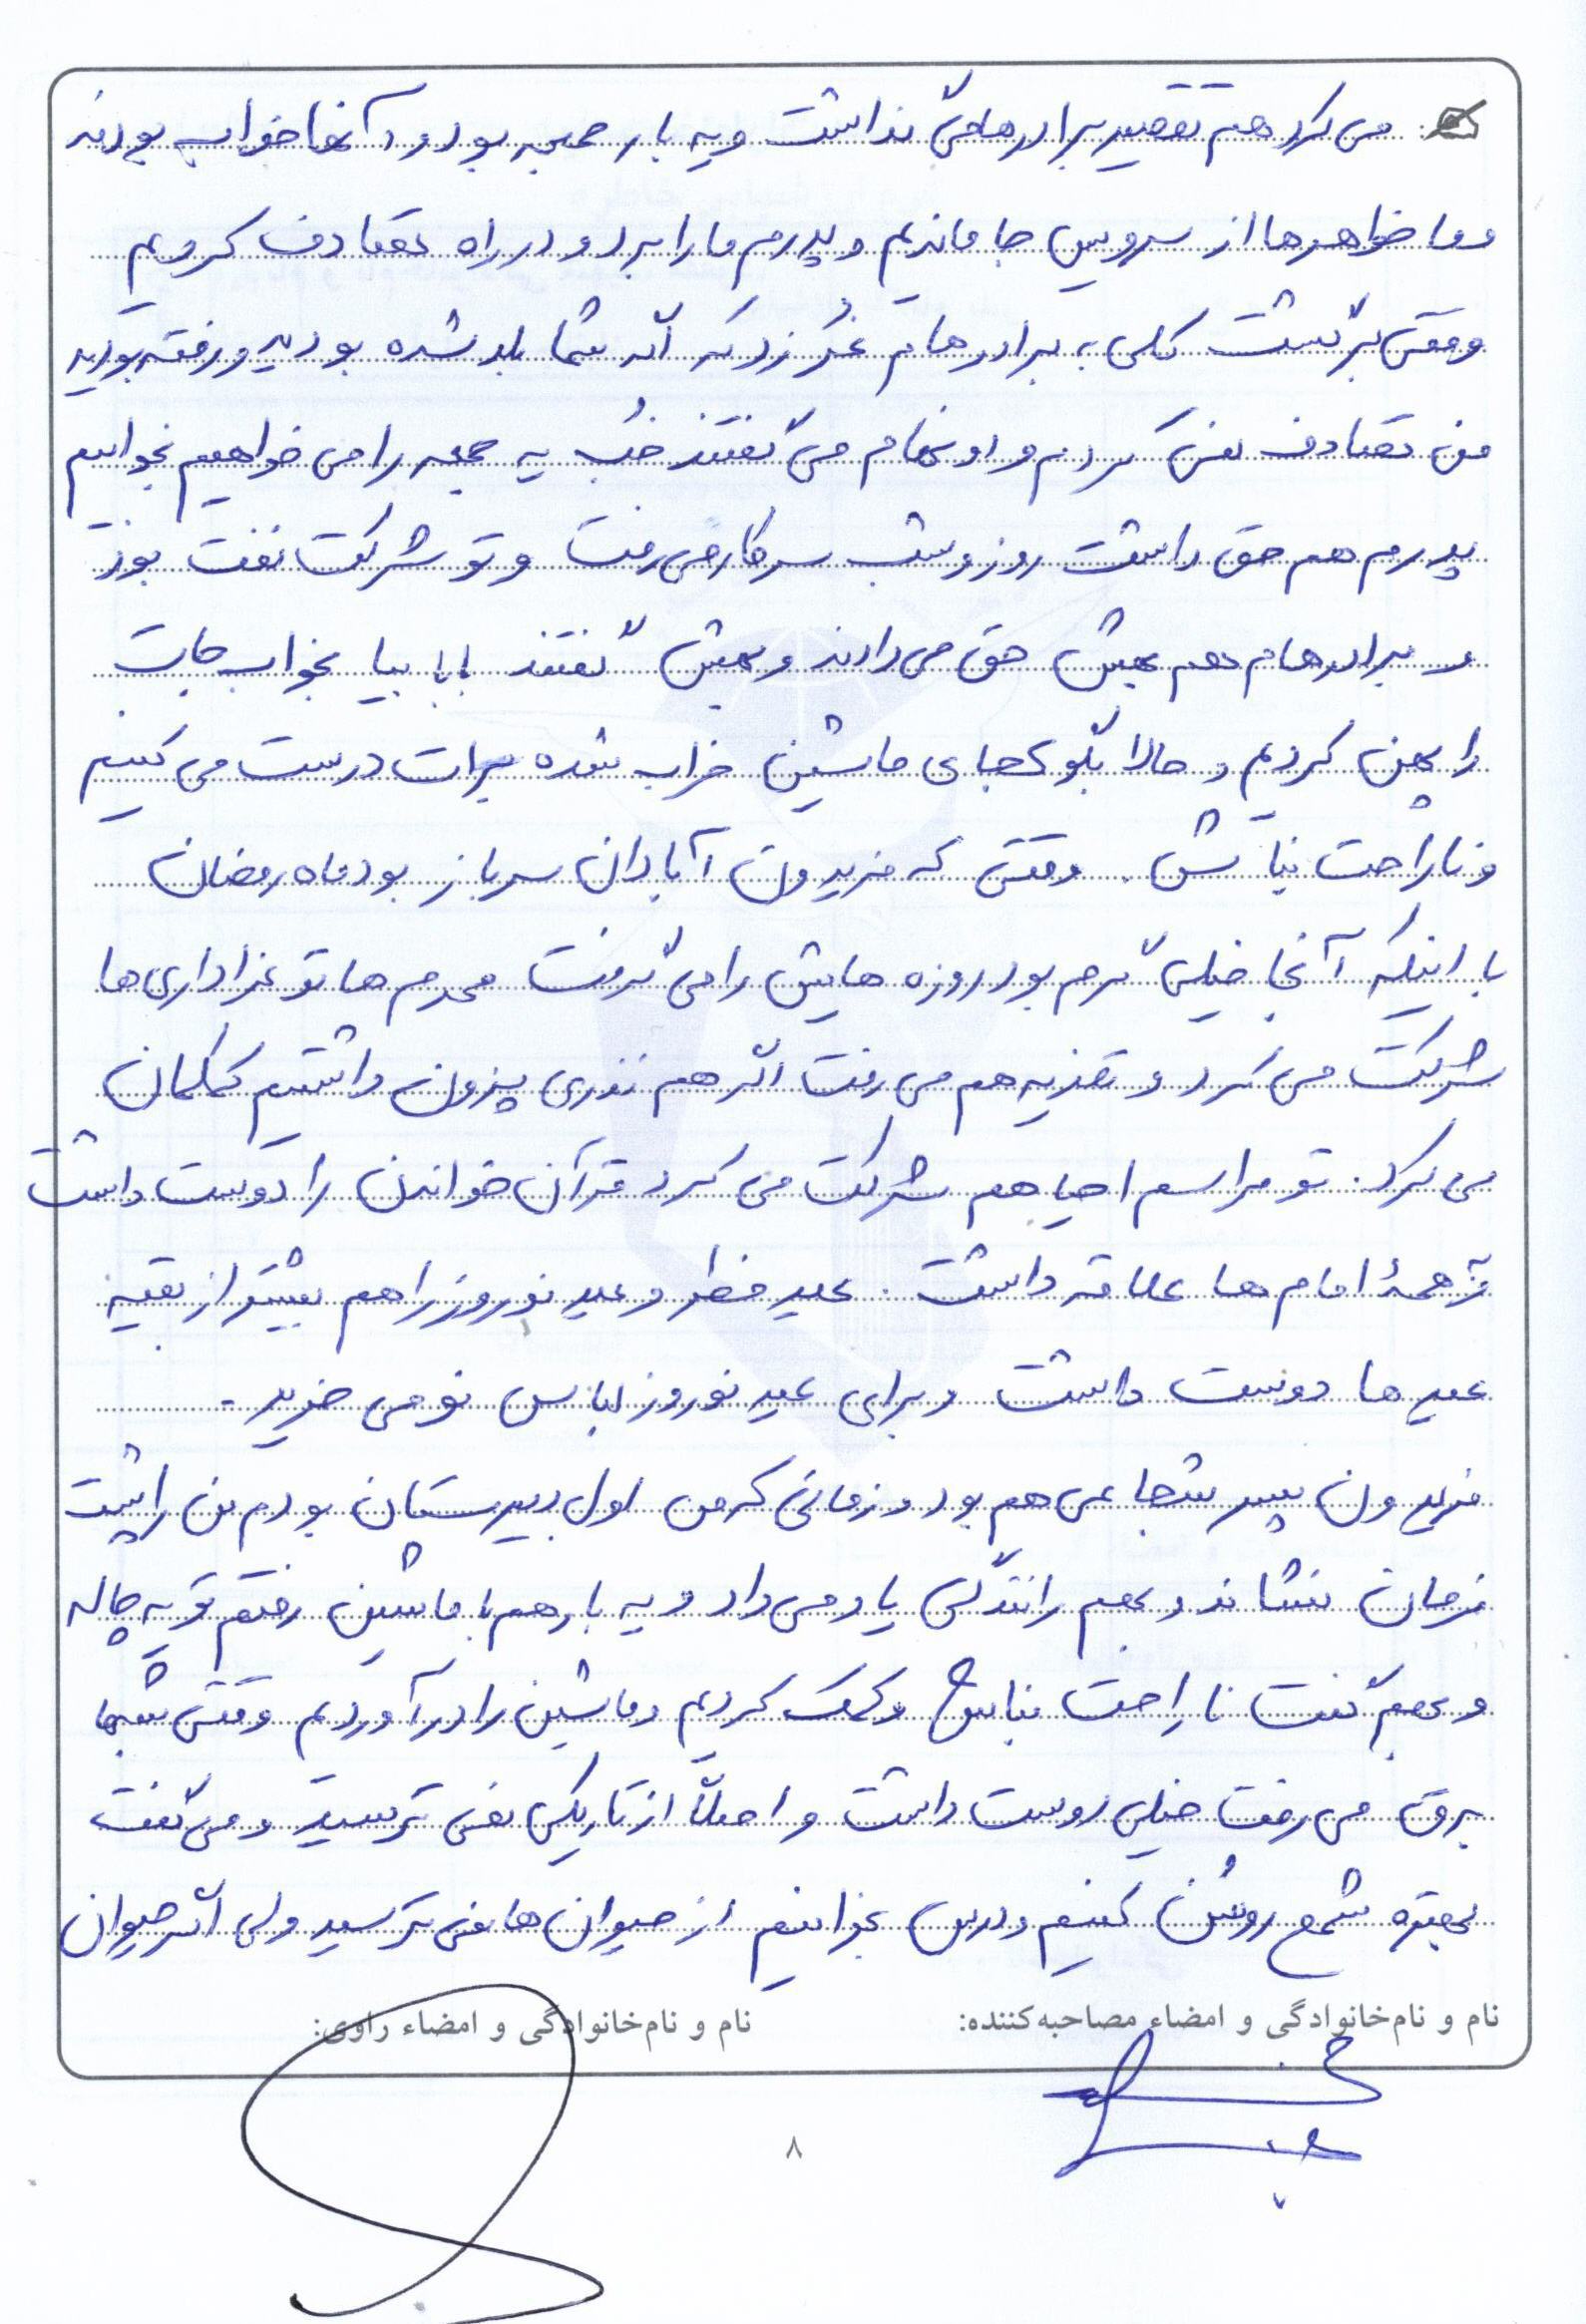 می کرد هم تقصیر برادرهامی نداشت و یه بار جمعه بود و آنها خواب بودند
و ما خواهرها از سرویس جا ماندیم و پدرم ما را برد و در راه تصادف کردیم
وقتی برگشت کلی به برادرهام غُر زد که اگه شما بلند شده بودید و رفته بودید
من تصادف نمی کردم و اونهام می گفتند خُب یه جمعه را می خواهیم بخوابیم
پدرم هم حق داشت روز و شب سرکار می رفت و تو شرکت نفت بود
و برادرهام هم بهش حق می دادند و بهش گفتند بابا بیا بخواب جات
را پهن کردیم و حالا بگو کجای ماشین خراب شده برات درست می کنیم
و ناراحت نباش. وقتی که فریدون آبادان سرباز بود ماه رمضان
با اینکه آنجا خیلی گرم بود روزه هایش را می گرفت محرم ها تو عزاداری ها
شرکت می کرد و تعزیه هم می رفت اگر هم نذری پزون داشتیم کمکمان
می کرد. تو مراسم احیا هم شرکت می کرد قرآن خواندن را دوست داشت
همۀ امام ها علاقه داشت. عید فطر و عید نوروز را هم بیشتر از بقیه
عیدها دوست داشت و برای عید نوروز لباس نو می خرید.
فریدون پسر شجاعی هم بود و زمانی که من اول دبیرستان بودم من را پشت
فرمان نشاند و بهم رانندگی یاد می داد و یه بار هم با ماشین رفتم تو یه چاله
و بهم گفت ناراحت نباش و کمک کردیم و ماشین را درآوردیم وقتی شبها
برق می رفت خیلی دوست داشت و اصلاً از تاریکی نمی ترسید و می گفت
بهتره شمع روشن کنیم و درس بخوانیم از حیوان ها نمی ترسید ولی اگر حیوان
نام و نام‌خانوادگی و امضاء مصاحبه‌کننده:
نام و نام‌خانوادگی و امضاء راوی:
۸